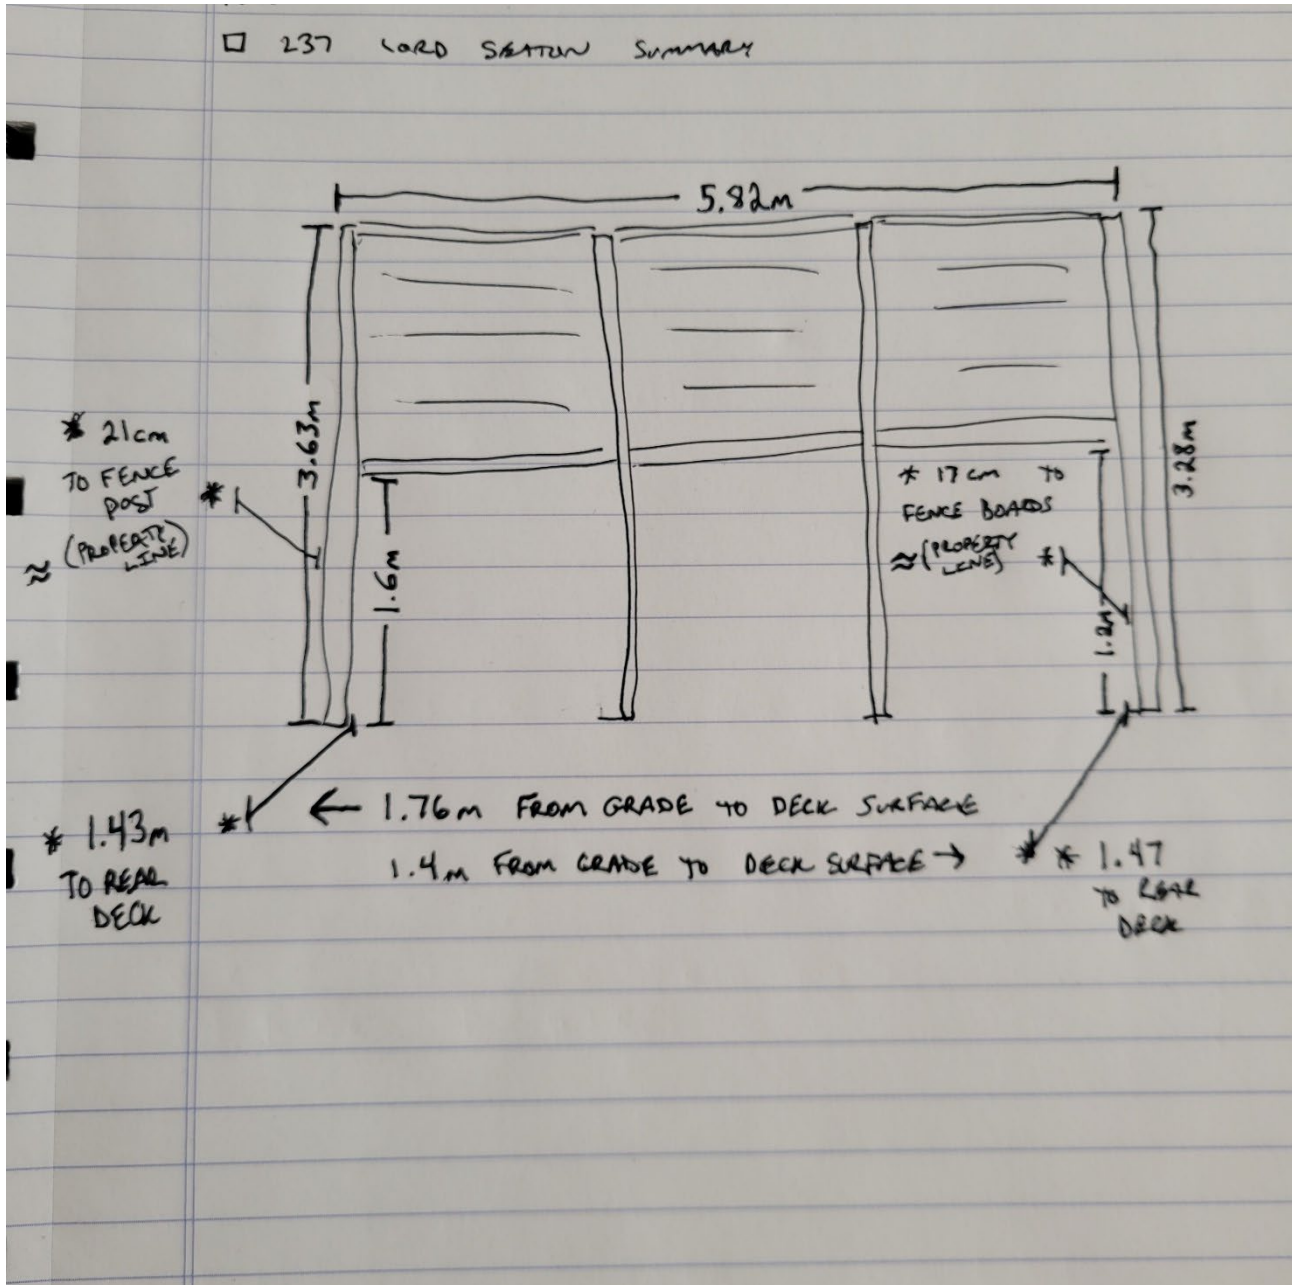 237 LORD SEATON SUMMARY
5.82m
3.63m
3.28m
* 21cm
TO FENCE
POST
≈ (PROPERTY
LINE)
*
1.6m
* 17cm TO
FENCE BOARDS
≈ (PROPERTY
LINE) *
1.2m
* 1.43m
TO REAR
DECK
*
← 1.76m FROM GRADE TO DECK SURFACE
1.4m FROM GRADE TO DECK SURFACE →
* * 1.47
TO REAR
DECK